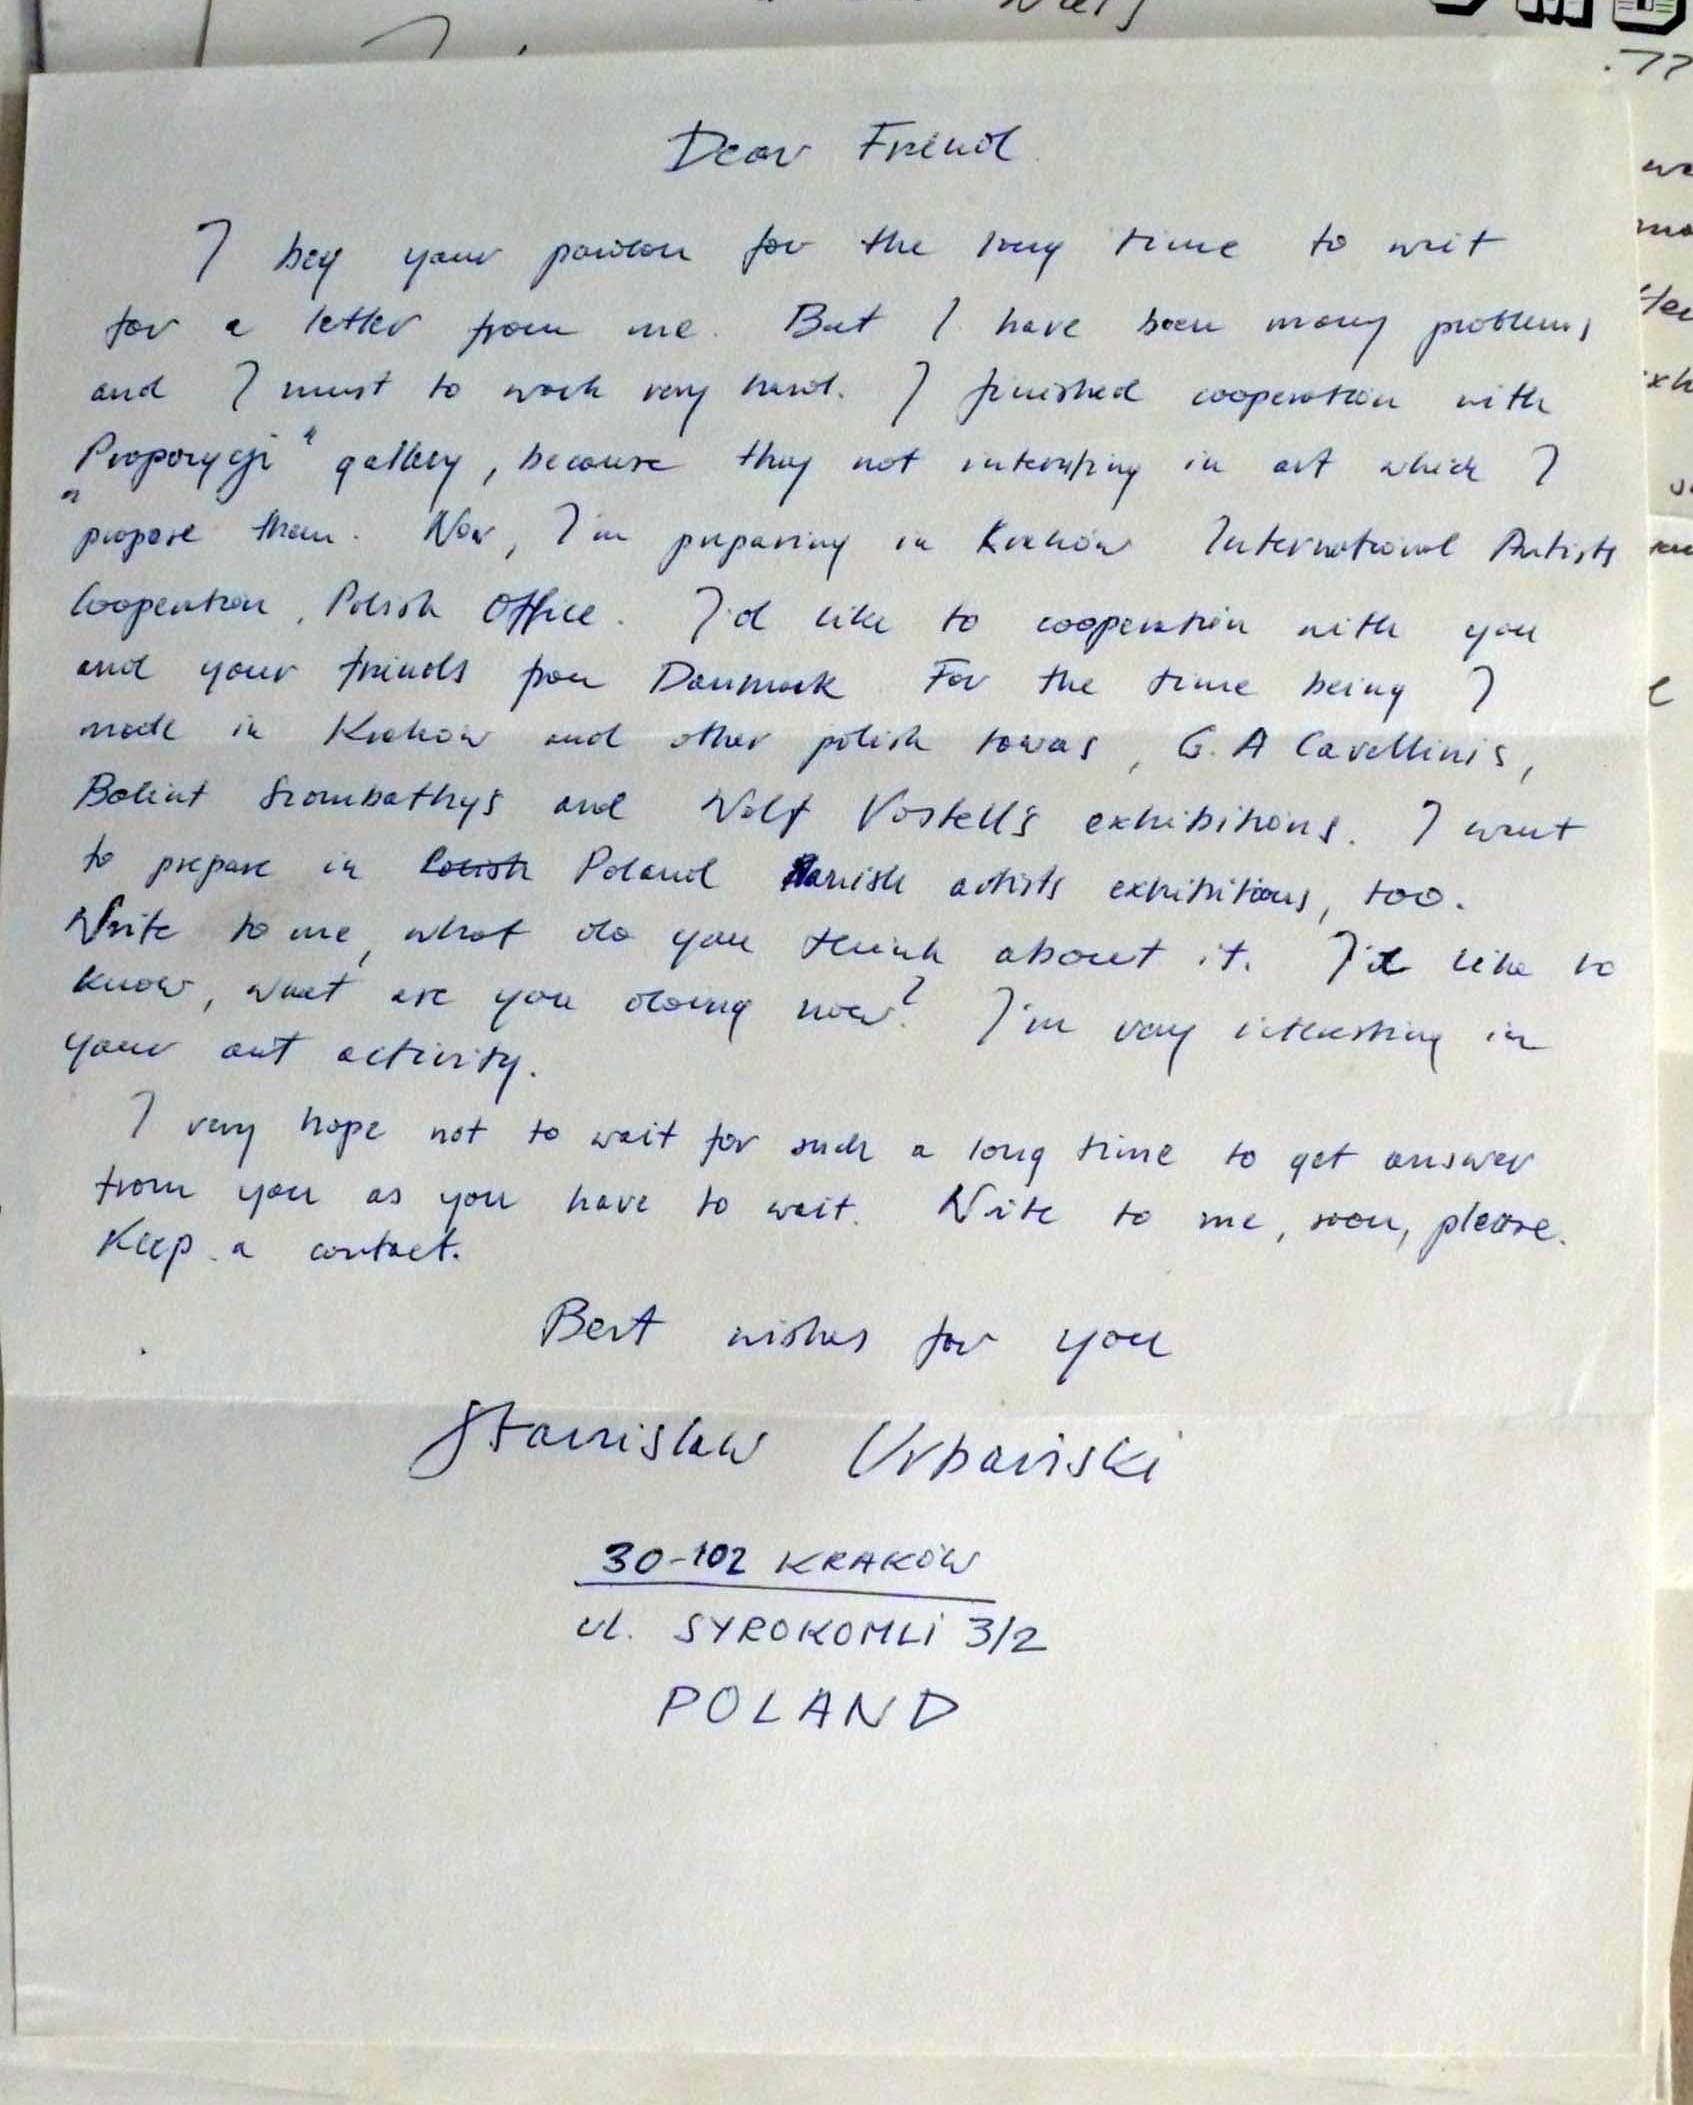 .77
Dear Friend
I beg your pardon for the long time to wait
for a letter from me. But I have been many problems
and I must to work very hard. I finished cooperation with
„Propozycje" gallery, because they not interesting in art which I
propose them. Now, I'm preparing in Kraków International Artists
Cooperation, Polish Office. I'd like to cooperation with you
and your friends from Danmark For the time being I
made in Kraków and other polish towns, G. A Cavellinis,
Balint Szombathys and Wolf Vostell's exhibitions. I want
to prepare in Polish Poland Danish artists exhibitions, too.
Write to me, what do you think about it. I'd like to
know, what are you doing now? I'm very interesting in
your art activity.
I very hope not to wait for such a long time to get answer
from you as you have to wait. Write to me, soon, please.
Keep a contact.
Best wishes for you
Stanislaw Urbański
30-102 KRAKÓW
ul. SYROKOMLI 3/2
POLAND